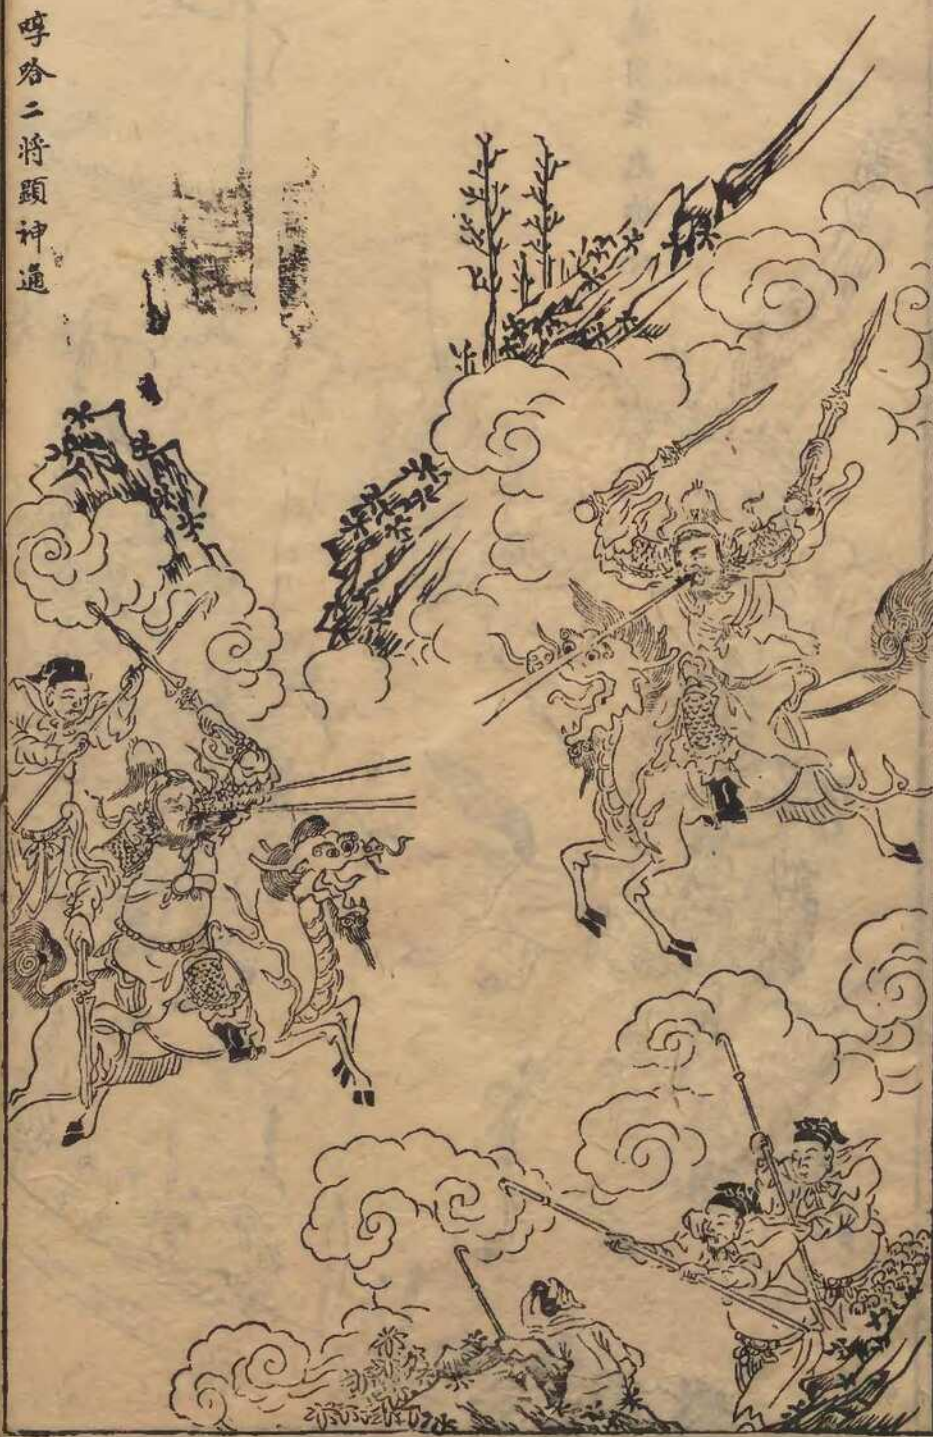 哼哈二將顯神通